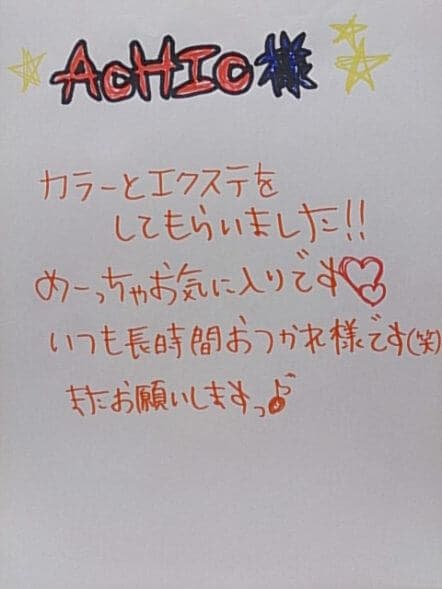 ☆AcHIc様☆☆
カラーとエクステを
してもらいました!!
めーっちゃお気に入りです♡
いつも長時間おつかれ様です(笑)
またお願いしますっ♪